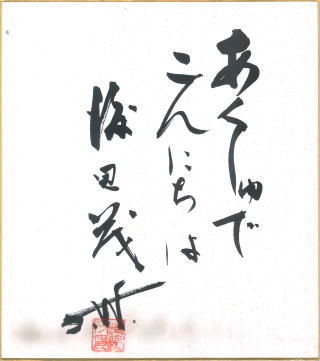 あくしゅで
こんにちは
田茂